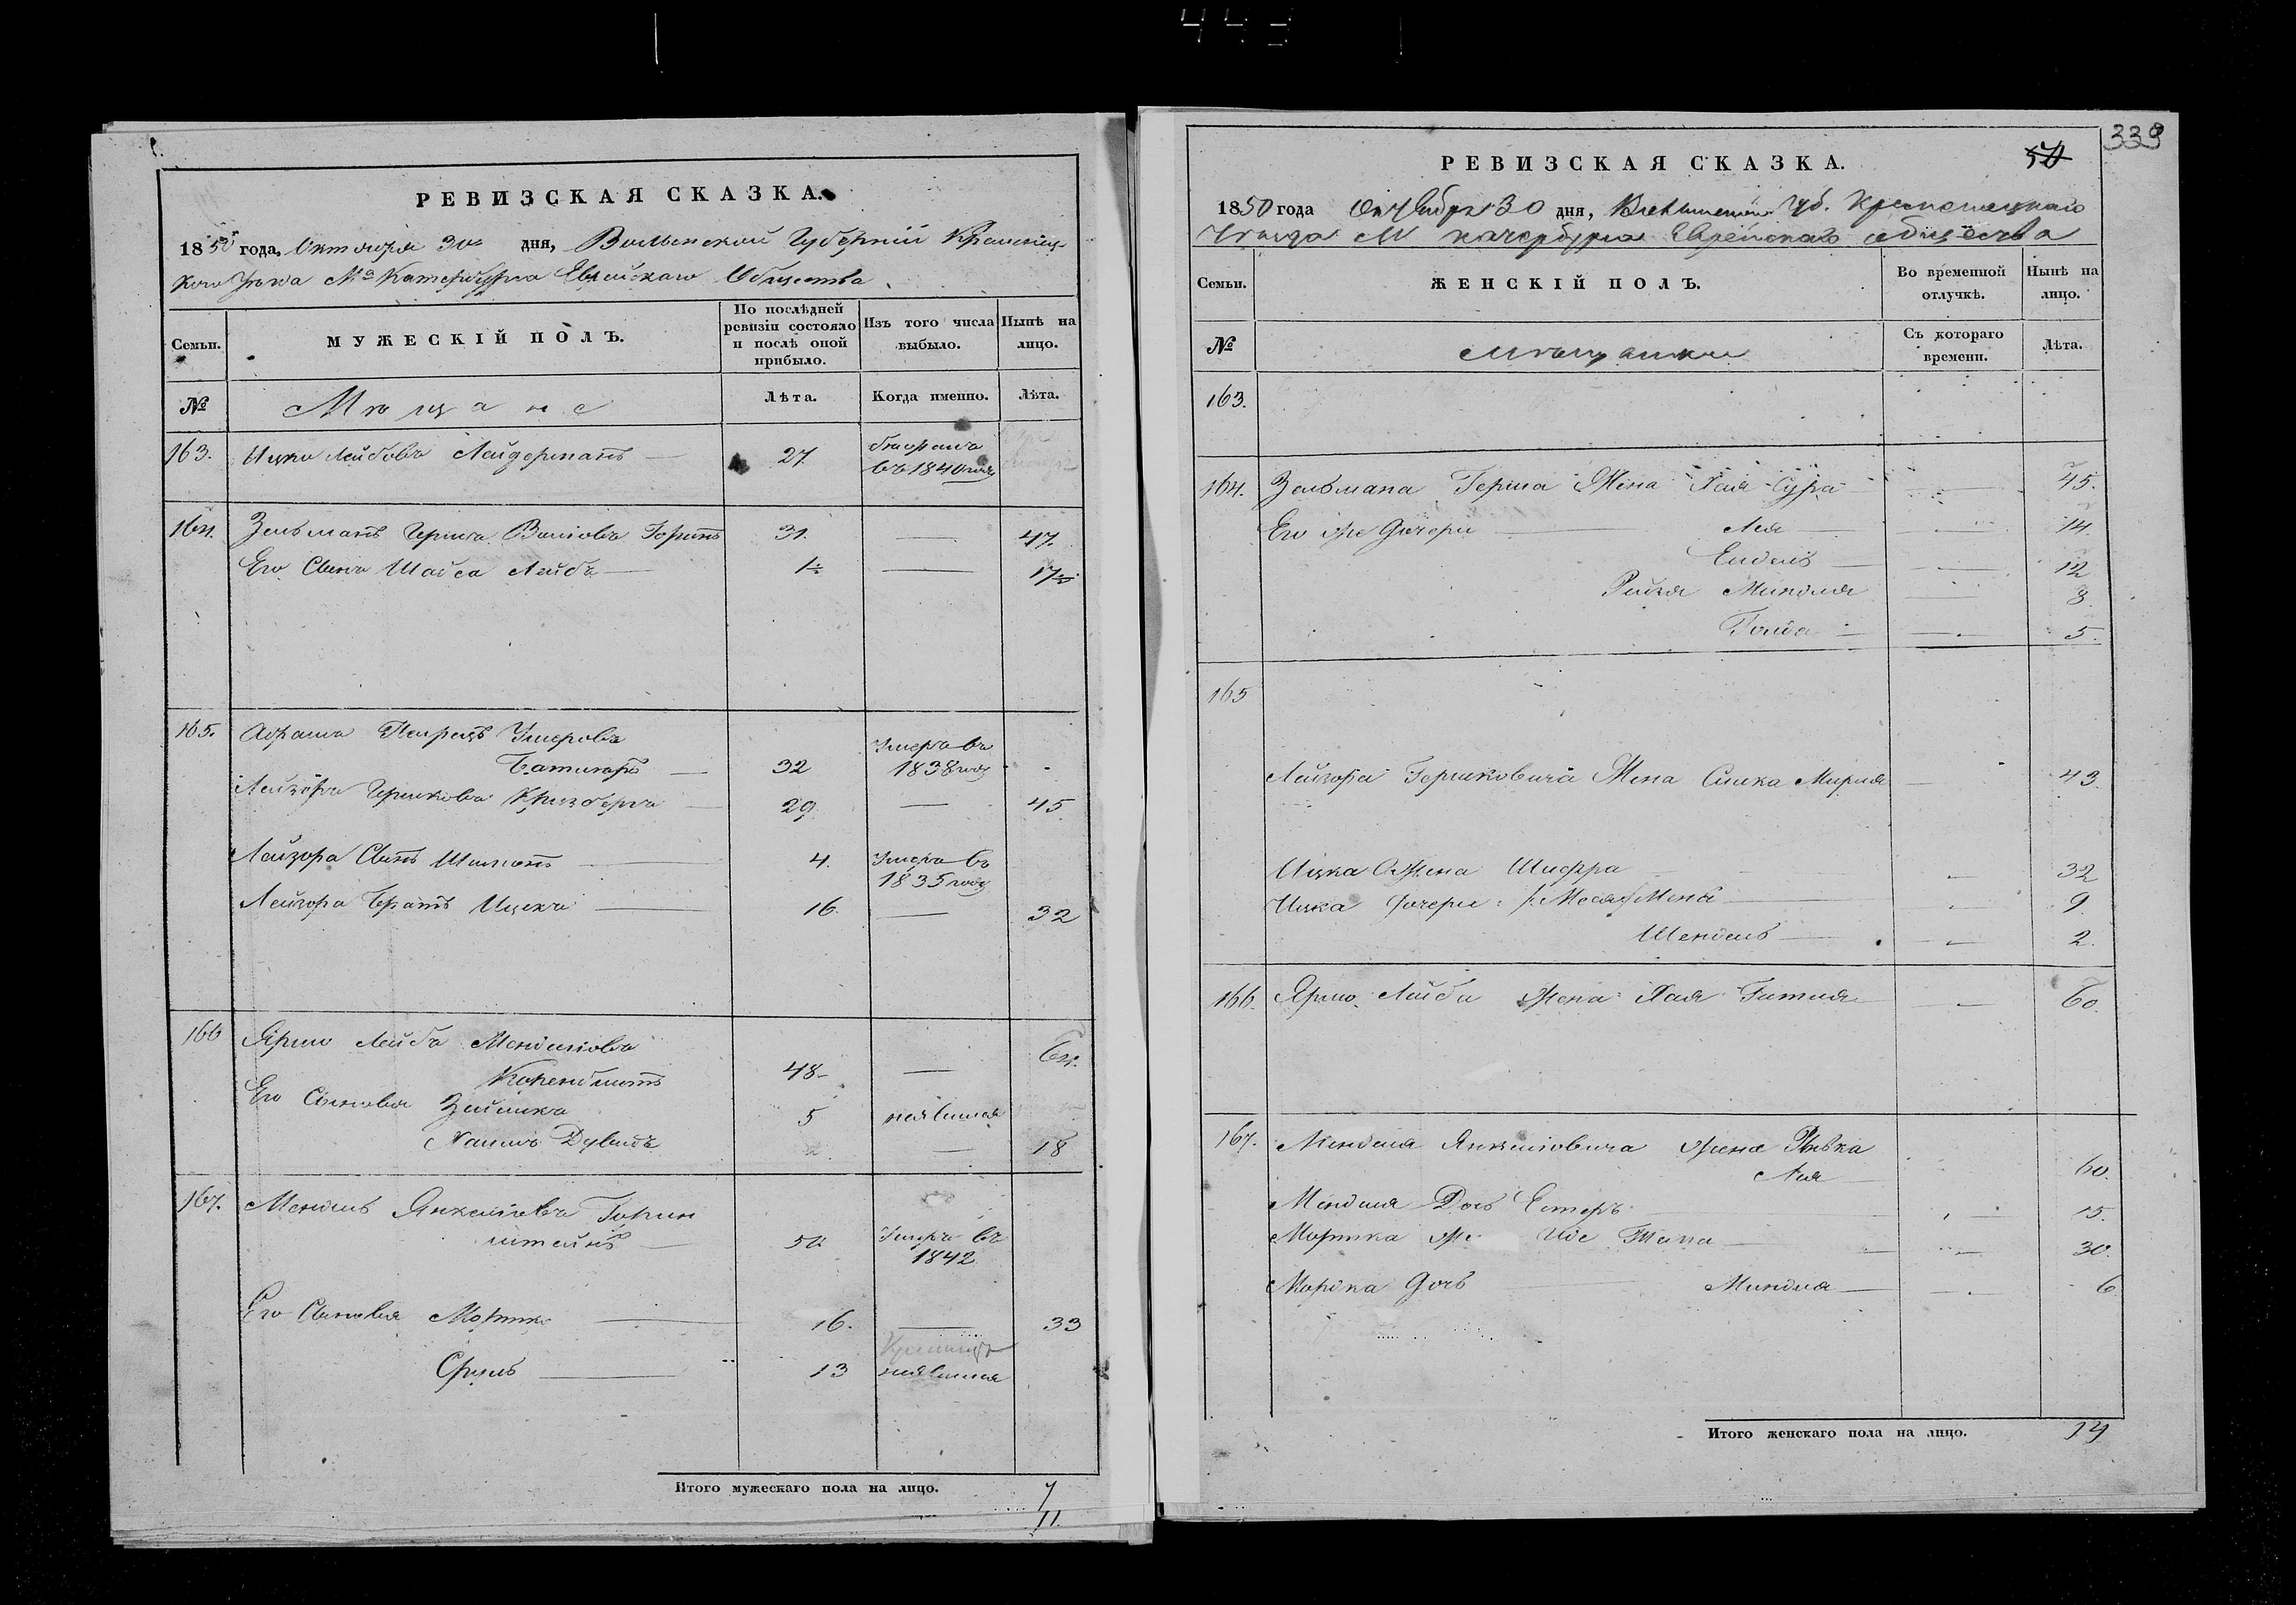 443
РЕВИЗСКАЯ СКАЗКА.
1850 года, Октября 30 дня, Волынской Губерніи Кременец-
кого Уѣзда М-ка Катербурга Еврейскаго Общества
Семьи.
МУЖЕСКІЙ ПОЛЪ.
По послѣдней ревизіи состояло и послѣ оной прибыло.
Изъ того числа выбыло.
Нынѣ на лицо.
№
Мѣщане
Лѣта.
Когда именно.
Лѣта.
163. Ицко Лейбовъ Лейдерманъ — 27
въ 1840 году
164. Зельманъ Герша Волёовъ Горинъ 31. — 47.
Его Сынъ Шаеса Лейба — 1½ — 17½
165. Абрамъ Перецъ Умеровъ
32 Умеръ въ 1838 году
Лейзоръ Гершковъ 29 — 45
Лейзора Сынъ Шимонъ — 4. Умеръ въ 1835 году
Лейзора Братъ Ицекъ — 16. — 32
166 Ярмо Лейба Менделіовъ
48 — 64.
Его Сыновья Зейлика 5 неявился
Дувидъ — 18
167. Мендель Янкеліовъ Горин
штейнъ — 50 Умеръ въ 1842
Его Сыновья Мортко — 16. — 33
Сруль — 13 неявился
Итого мужескаго пола на лицо. 7
11.
339
50
РЕВИЗСКАЯ СКАЗКА.
1850 года Октября 30 дня, Волынской Губ. Кременецкаго
Уѣзда М Катербурга Еврейскаго общества
Семьи.
ЖЕНСКІЙ ПОЛЪ.
Во временной отлучкѣ.
Нынѣ на лицо.
№
Мѣщанки
Съ котораго времени.
Лѣта.
163.
164. Зельмана Герша Жена Хая Сура — 45.
Его же Дочери — Лея — 14.
Ейдель — 12
Рийзя Миндля — 8
Голда — 5.
165
Лейзора Гершковича Жена Симка Мирля — 43.
Ицка Жена Шифра — 32
Ицка Дочери: — 9.
Шендель — 2.
166. Ярмо Лейба Жена Хая Гитля — 60.
167. Менделя Янкеліовича жена Ривка
Лея — 60.
Менделя Дочь Естеръ — 15.
Мортка же — 30.
Мортка Дочь — Миндля — 6
Итого женскаго пола на лицо. 14